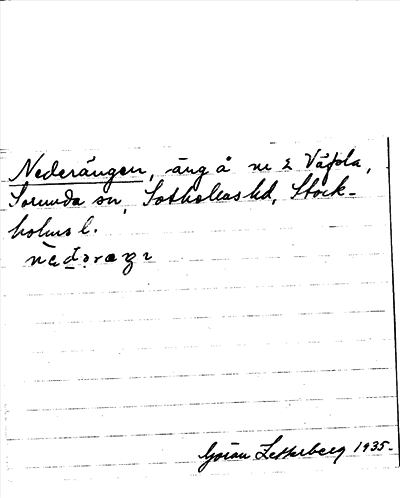 Nederängen, äng å nr 2 Våfsla,
Sorunda sn, Sotholms hd, Stock-
holms l.
Göran Zetterberg 1935.